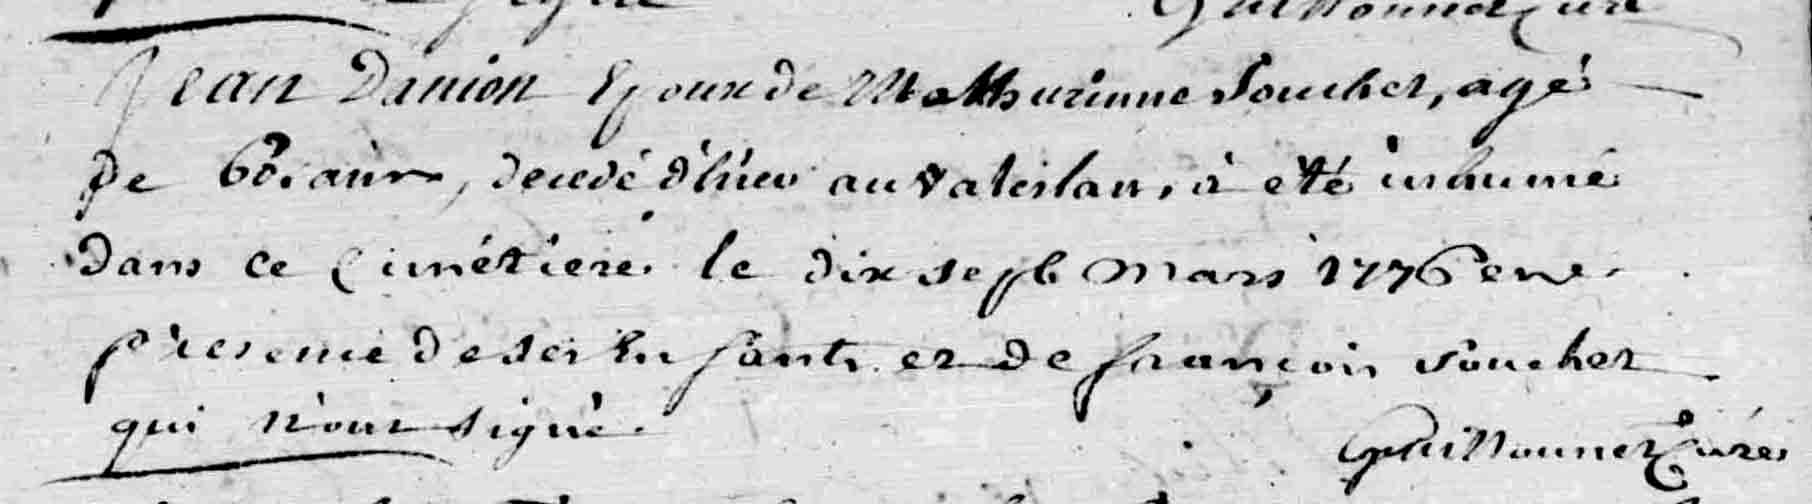 Guillonnet Curé
Jean Danion Epoux de Mathurinne Souchet, agé
De 60. ans, decedé d'hier au , à eté inhumé
dans ce Cimétiere le dix sept Mars 1776 en
présence de ses Enfants et de françois Souchet
qui n'ont signé.
Guillonnet Curé